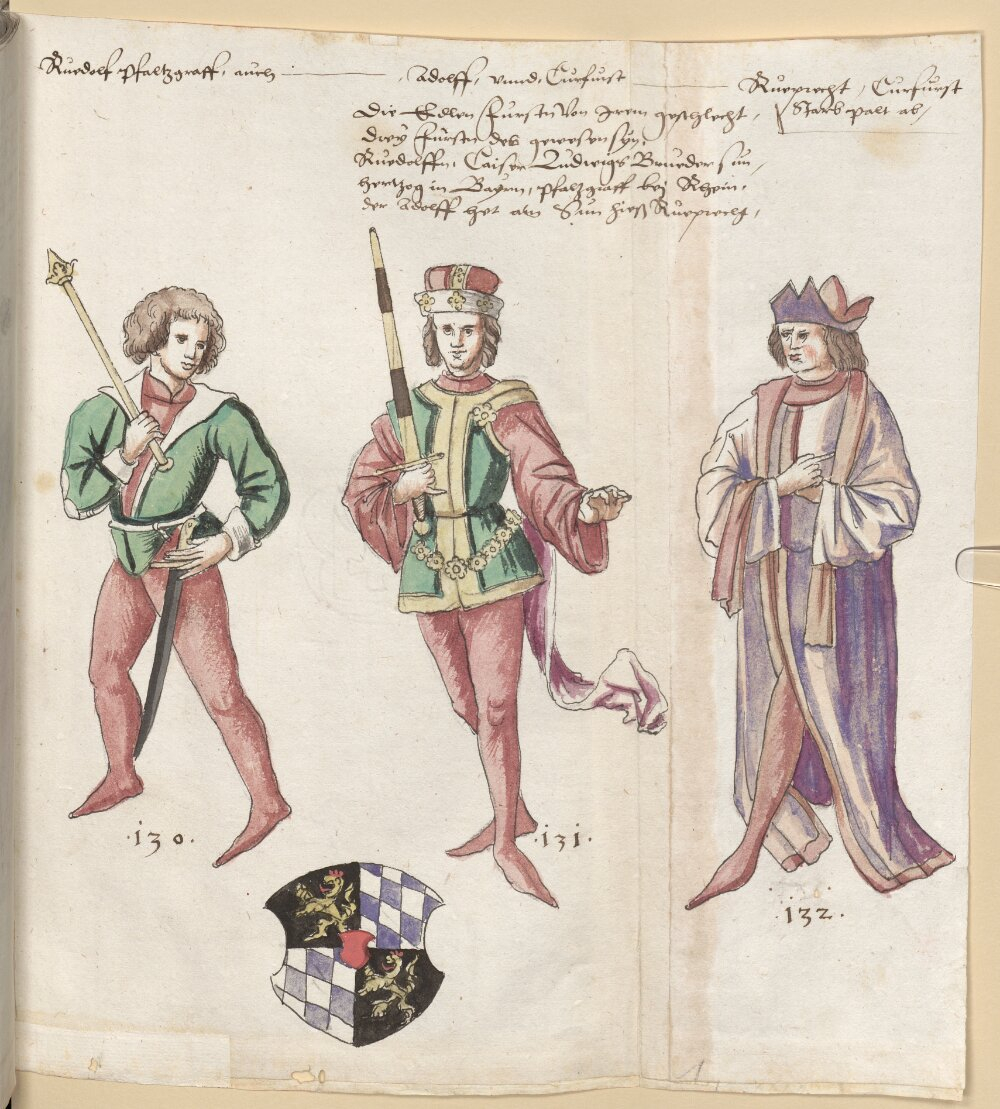 Ruedolf Pfaltzgraff, auch
Adolff, vnnd, Curfurst
Rueprecht, Curfurst
Starb palt ab,
Die Edlen Fursten von Irem geschlecht,
Drey Fürsten des gewesen syn,
Ruedolffn, Caiser Ludwigs Brueder sun,
hertzog in Bayrn, Pfaltzgraff bej Rhein,
der Adolff het ain Sun hiess Rueprecht,
.130.
.131.
.132.